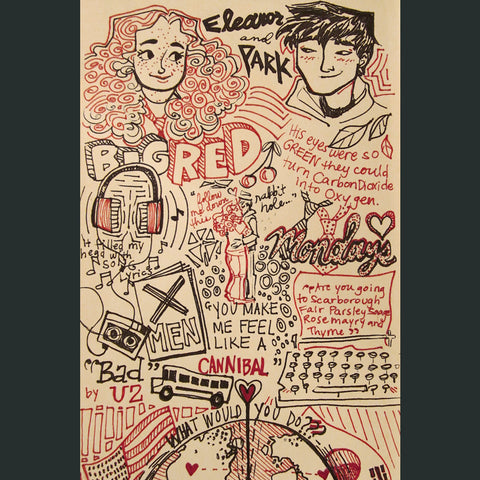 Eleanor
and
PARK
BIG RED
His eyes were so
GREEN they could
turn Carbon Dioxide
into Oxygen.
"follow
me down
this
rabbit
hole..."
Mondays
It filled my
head with
song
lyrics
X
MEN
"Are you going
to Scarborough
Fair Parsley Sage
Rosemary and
Thyme"
"YOU MAKE
ME FEEL
LIKE A
CANNIBAL"
"Bad"
by U2
WHAT WOULD YOU DO??